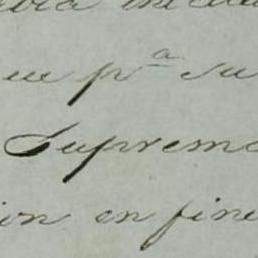 ue pª su
Supremo
ion en fine